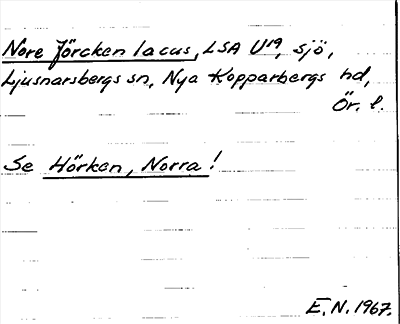 Nore Jörcken lacus, LSA U19, sjö,
Ljusnarsbergs sn, Nya Kopparbergs hd,
Ör. l.
Se Hörken, Norra!
E.N. 1967.